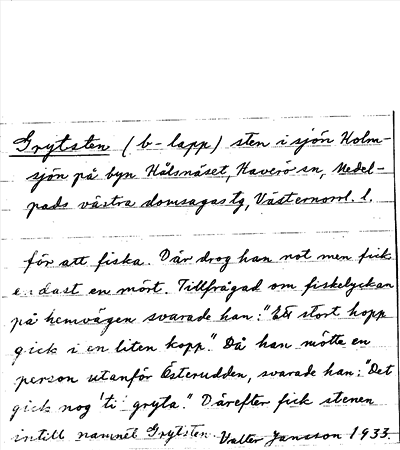 Grytsten (b-lapp) sten i sjön Holm-
sjön på byn Hålsnäset, Haverö sn, Medel-
pads västra domsagas tg, Västernorrl. l.
för att fiska. Där drog han not men fick
endast en mört. Tillfrågad om fiskelyckan
på hemvägen svarade han: "Ett stort hopp
gick i en liten kopp". Då han mötte en
person utanför Österudden, svarade han: "Det
gick nog 'ti' gryta." Därefter fick stenen
intill namnet Grytsten. Valter Jansson 1933.